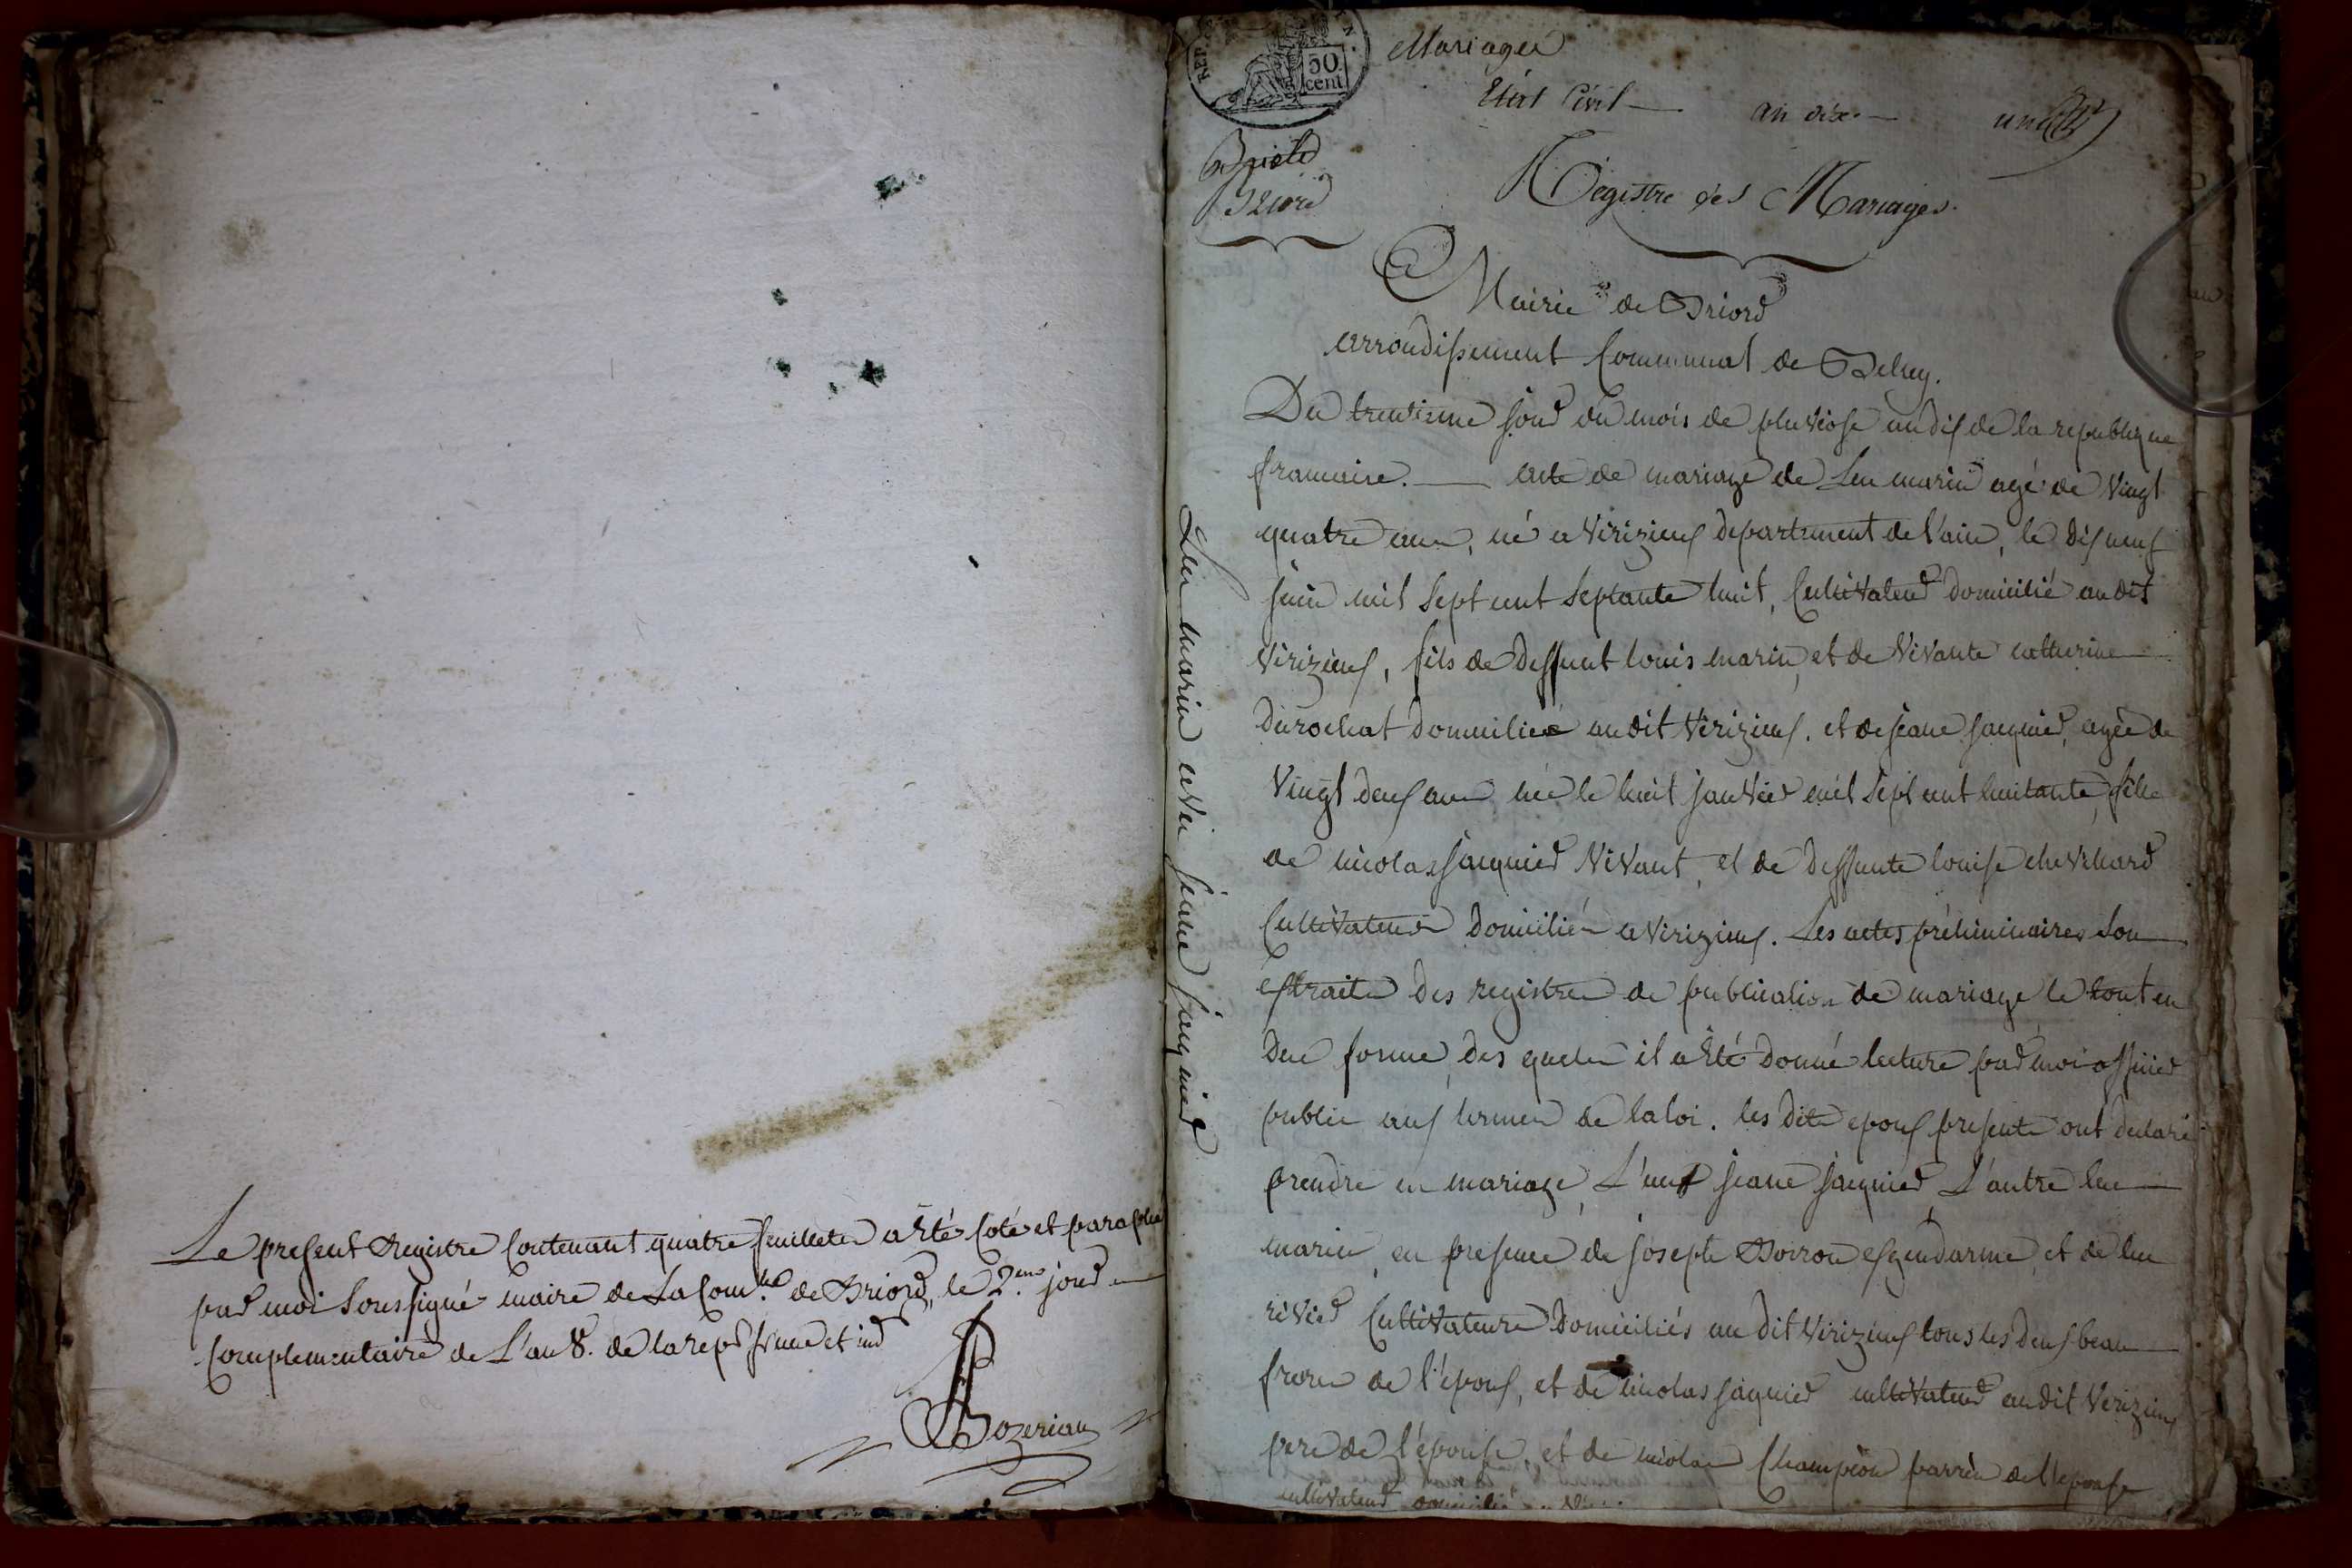 Le present Registre Contenant quatre feuillets a Eté Coté et paraphé
par moi Soussigné maire de La Com.ne de Briord, le 2.eme jour
Complementaire de L'an 8. de la rep. frane et ind
Bozerian
Luc marin avec jeane jacquier
50
cent
Mariages
Etat Civil an dix un
Briord
Registre des Mariages.
Mairie de Briord
arrondissement Communal de Belley.
Du trentieme jour du mois de pluviose an dix de la republique
francaise. acte de mariage de Luc marin agé de vingt
quatre ans, né a Virizieux departement de l'ain, le dix neuf
juin mil sept cent septante huit, Cultivateur domicilié au dit
Virizieux, fils de deffunt louis marin, et de vivante catherine
durochat domiciliée au dit Virizieux. et de jeane jacquier, agée de
vingt deux ans née le huit janvier mil sept cent huitante, fille
de nicolas jacquier vivant, et de deffunte louise chevillard
Cultivateurs domiciliés a Virizieux. Les actes préliminaires son
extraits des registres de publication de mariage le tout en
due forme, des quels il a Eté donné lecture par moi officier
public aux termes de la loi. les dits epoux presents ont declaré
prendre en mariage, L'un jeane jacquier L'autre luc
marin, en presence de joseph Boiron exgendarme, et de luc
rivier Cultivateurs domiciliés au dit Virizieux tous les deux beau
freres de l'époux, et de nicolas jaquier cultivateur au dit Virizieux
pere de l'épouse, et de nicolas Champion parrin de l'epouse
cultivateur domicilié